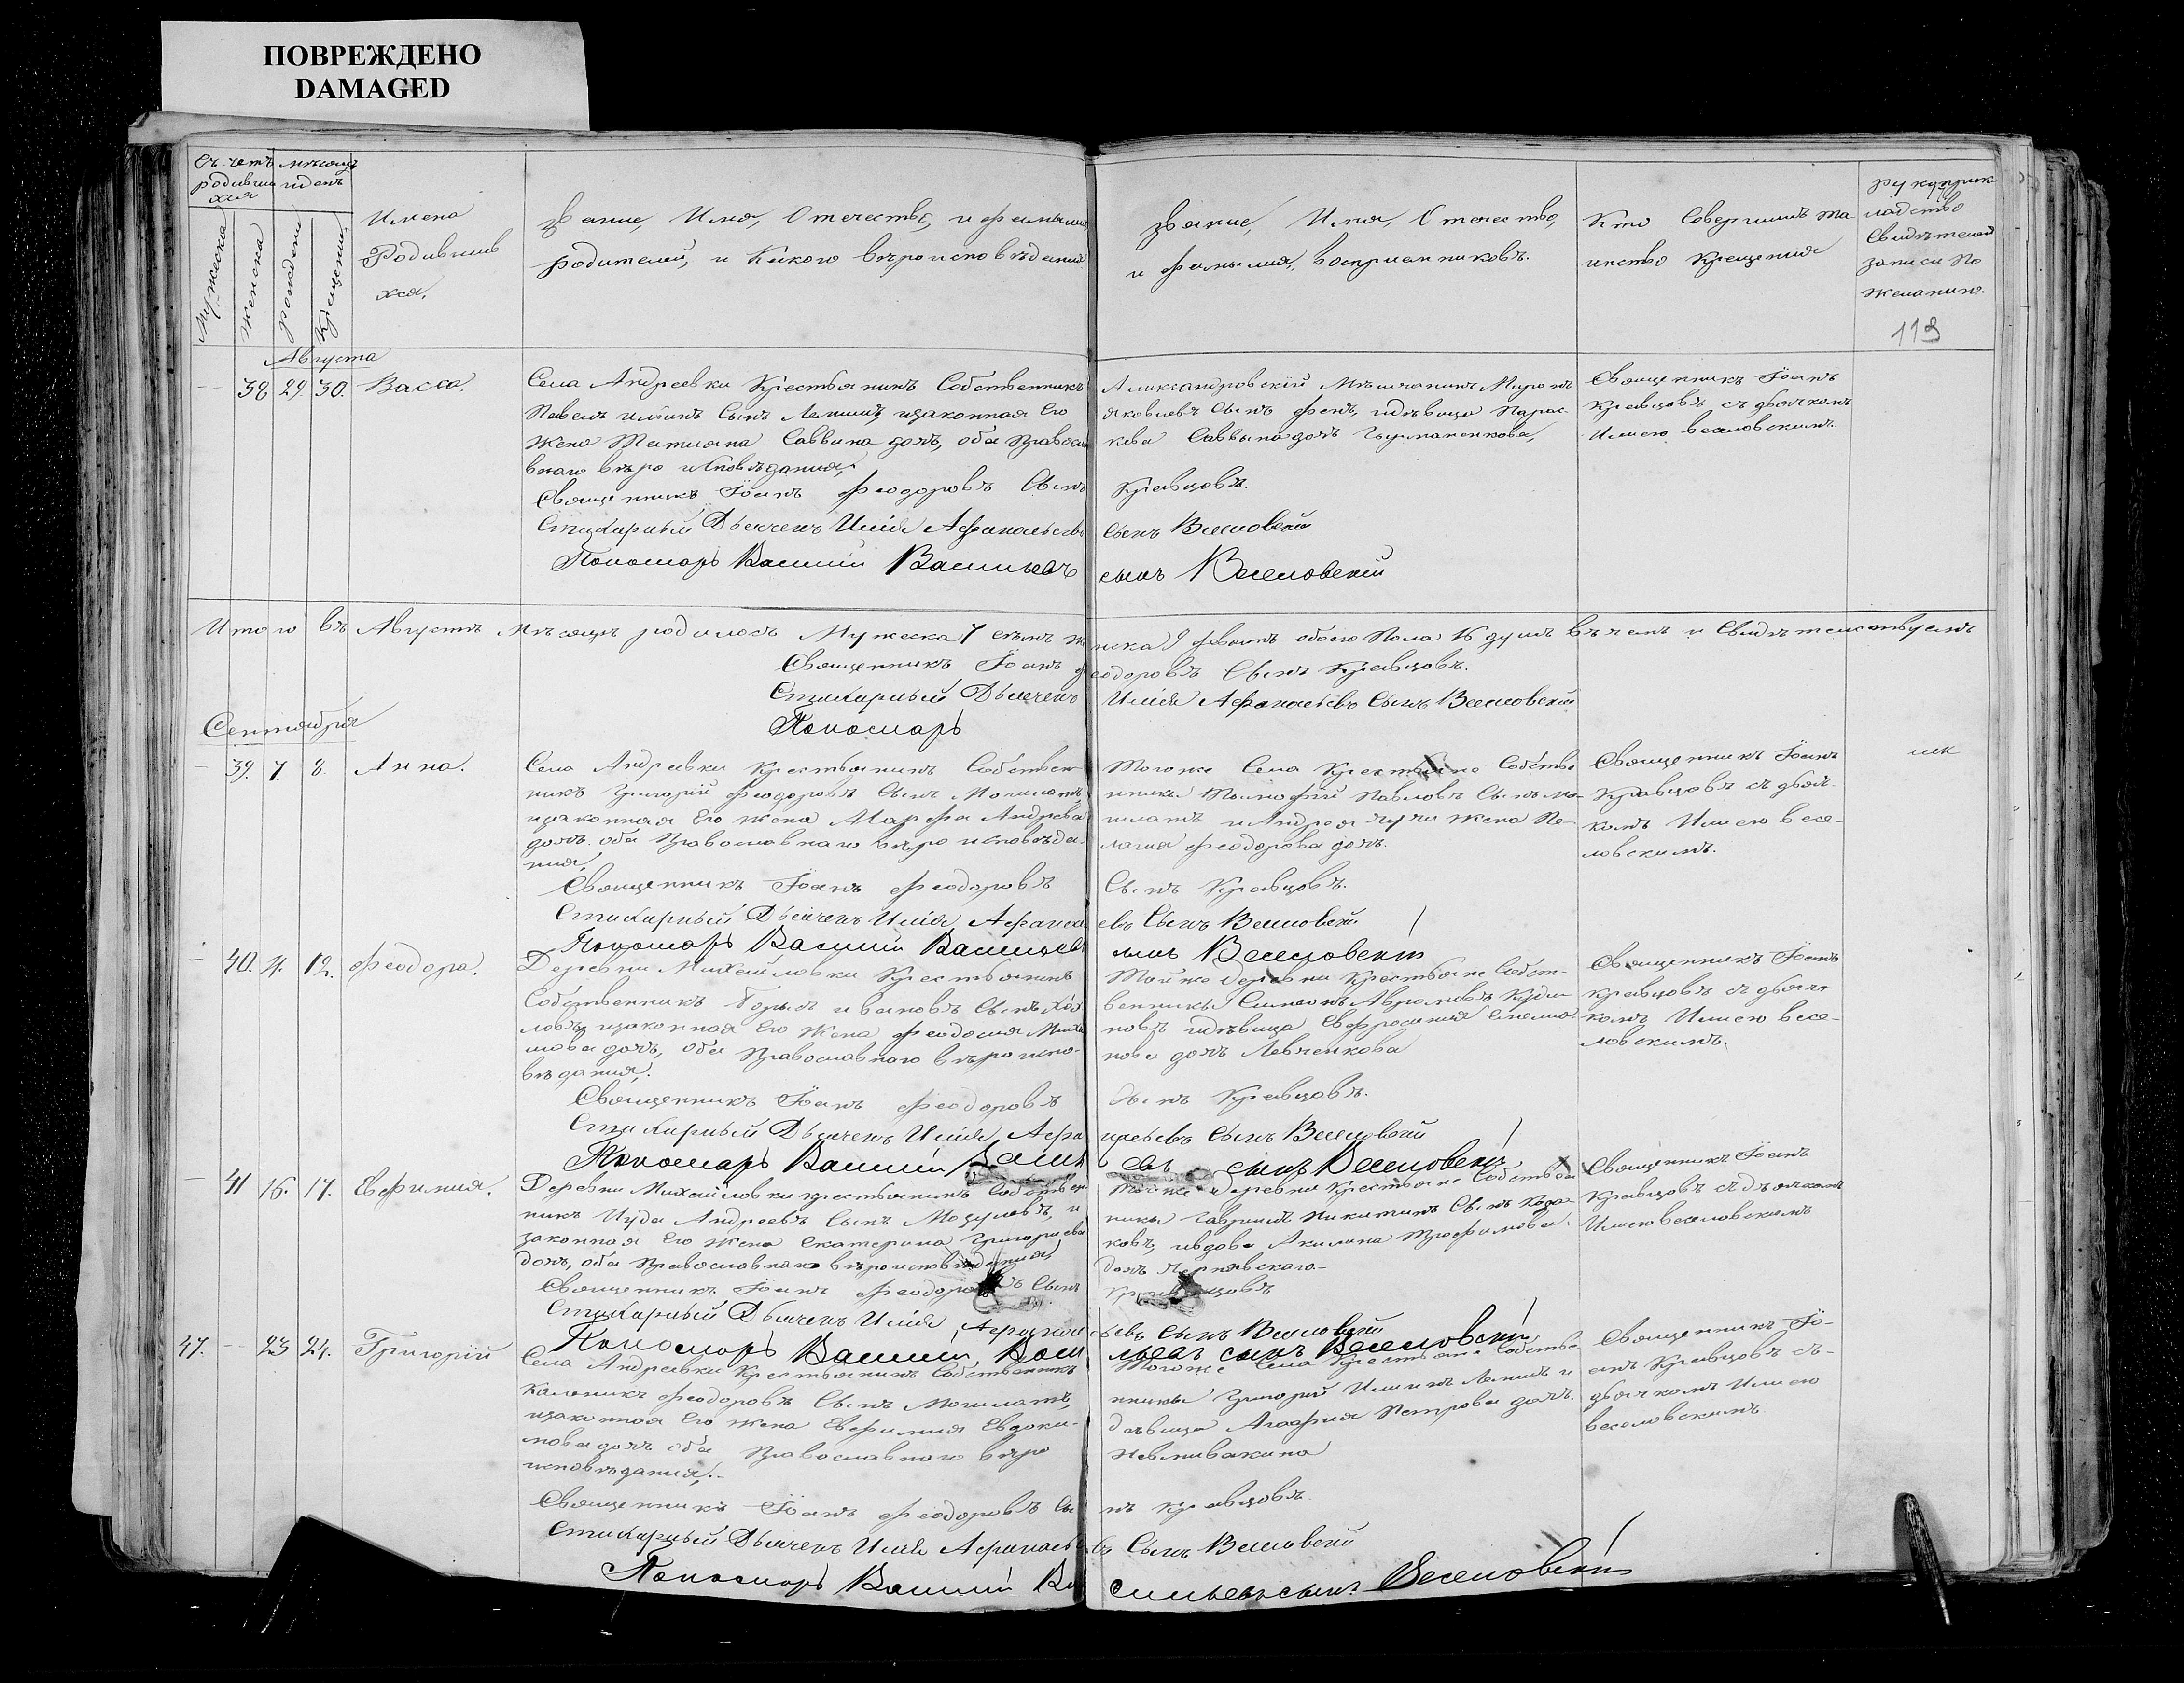 ПОВРЕЖДЕНО
DAMAGED
Счетъ родившихся
Мѣсяцъ и день
Мужеска
Женска
рождения
Крещения
Имена
Родивших
хся,
Звание, Имя, Отечество, и фамилия
родителей, и какого вѣроисповѣдания
Звание, Имя, Отечество,
и фамилия, восприемниковъ.
Кто Совершилъ та-
инство Крещения
рукоприк
ладство
Свидѣтелей
записи по
желанию.
113
Августа
38 29. 30. Васса.
Села Андреевки Крестьянинъ Собственникъ
Павелъ Сынъ изаконная Его
жена Татияна Саввина дочь, оба Правосла
внаго вѣро исповѣдания,
Александровский Мѣщанинъ Миронъ
Яковлевъ Сынъ идѣвица Парас-
кева Саввина дочь
Священникъ Іоанъ
Кравцовъ съ дьячкомъ
Илиею веселовскимъ.
Священникъ Іоанъ Феодоровъ Сынъ Кравцовъ.
Стихарный Дьячекъ Илія Афанасьевъ Сынъ Веселовский
Пономарь Василий Васильевъ сынъ Веселовский
Итого въ Августѣ Мѣсяцѣ родилось Мужеска 7 женска 9 обоего Пола 16 душъ въ чемъ и Свидѣтельствуемъ
Священникъ Іоанъ Феодоровъ Сынъ Кравцовъ.
Стихарный Дьячекъ Илія Афанасьевъ Сынъ Веселовский
Пономарь
Сентября
39. 7. 8. Анна.
Села Андреевки Крестьянинъ Собствен-
никъ Григорий Феодоровъ Сынъ
изаконная Его жена Марфа Андреева
дочь. оба Православнаго вѣро исповѣда-
ния,
Тогоже Села Крестьяне Собстве
нники Тимофий Павловъ Сынъ
и Андрея жена Пе-
лагия Феодорова дочь.
Священникъ Іоанъ
Кравцовъ съ дьяч-
комъ Илиею весе-
ловскимъ.
Священникъ Іоанъ Феодоровъ Сынъ Кравцовъ.
Стихарный Дьячекъ Илія Афанасьевъ Сынъ Веселовский
Пономарь Василий Васильевъ сынъ Веселовский
40. 4. 12. Феодора.
Деревни Михайловки Крестьянинъ
Собственникъ ивановъ Сынъ
изаконная Его жена Феодосия
дочь, оба Православнаго вѣроиспо-
вѣдания,
Тойже деревни Крестьяне Собст-
венники Симеонъ
идѣвица Евфросиния
дочь Левченкова
Священникъ Іоанъ
Кравцовъ съ дьяч-
комъ Илиею весе-
ловскимъ.
Священникъ Іоанъ Феодоровъ Сынъ Кравцовъ.
Стихарный Дьячекъ Илія Афанасьевъ Сынъ Веселовский
Пономарь Василий Васильевъ сынъ Веселовский
41 16. 17. Евфимия.
Деревни Михайловки крестьянинъ Собствен
никъ Иуда Андреевъ Сынъ и
законная Его жена Екатерина Григориева
дочь, оба Православнаго вѣроисповѣдания,
Тойже деревни Крестьяне Собствен
ники Гавриилъ Никитинъ Сынъ Коза-
ковъ, ивдова Акилина Трофимова
дочь
Священникъ Іоанъ
Кравцовъ съ дьячкомъ
Илиею веселовскимъ
Священникъ Іоанъ Феодоровъ Сынъ Кравцовъ
Стихарный Дьячекъ Илія Афанасьевъ Сынъ Веселовский
Пономарь Василий Васильевъ сынъ Веселовский
47. 23 24. Григорій
Села Андреевки Крестьянинъ Собственникъ
Калиникъ Феодоровъ Сынъ
изаконная Его жена Евфимия Евдоки-
мова дочь оба Православнаго вѣро
исповѣдания,
Тогоже Села Крестьяне Собстве
нники Григорий и
дѣвица Агафия Петрова дочь.
Священникъ Іо-
анъ Кравцовъ съ-
дьячкомъ Илиею
веселовскимъ
Священникъ Іоанъ Феодоровъ Сынъ Кравцовъ
Стихарный Дьячекъ Илія Афанасьевъ Сынъ Веселовский
Пономарь Василий Васильевъ сынъ Веселовский